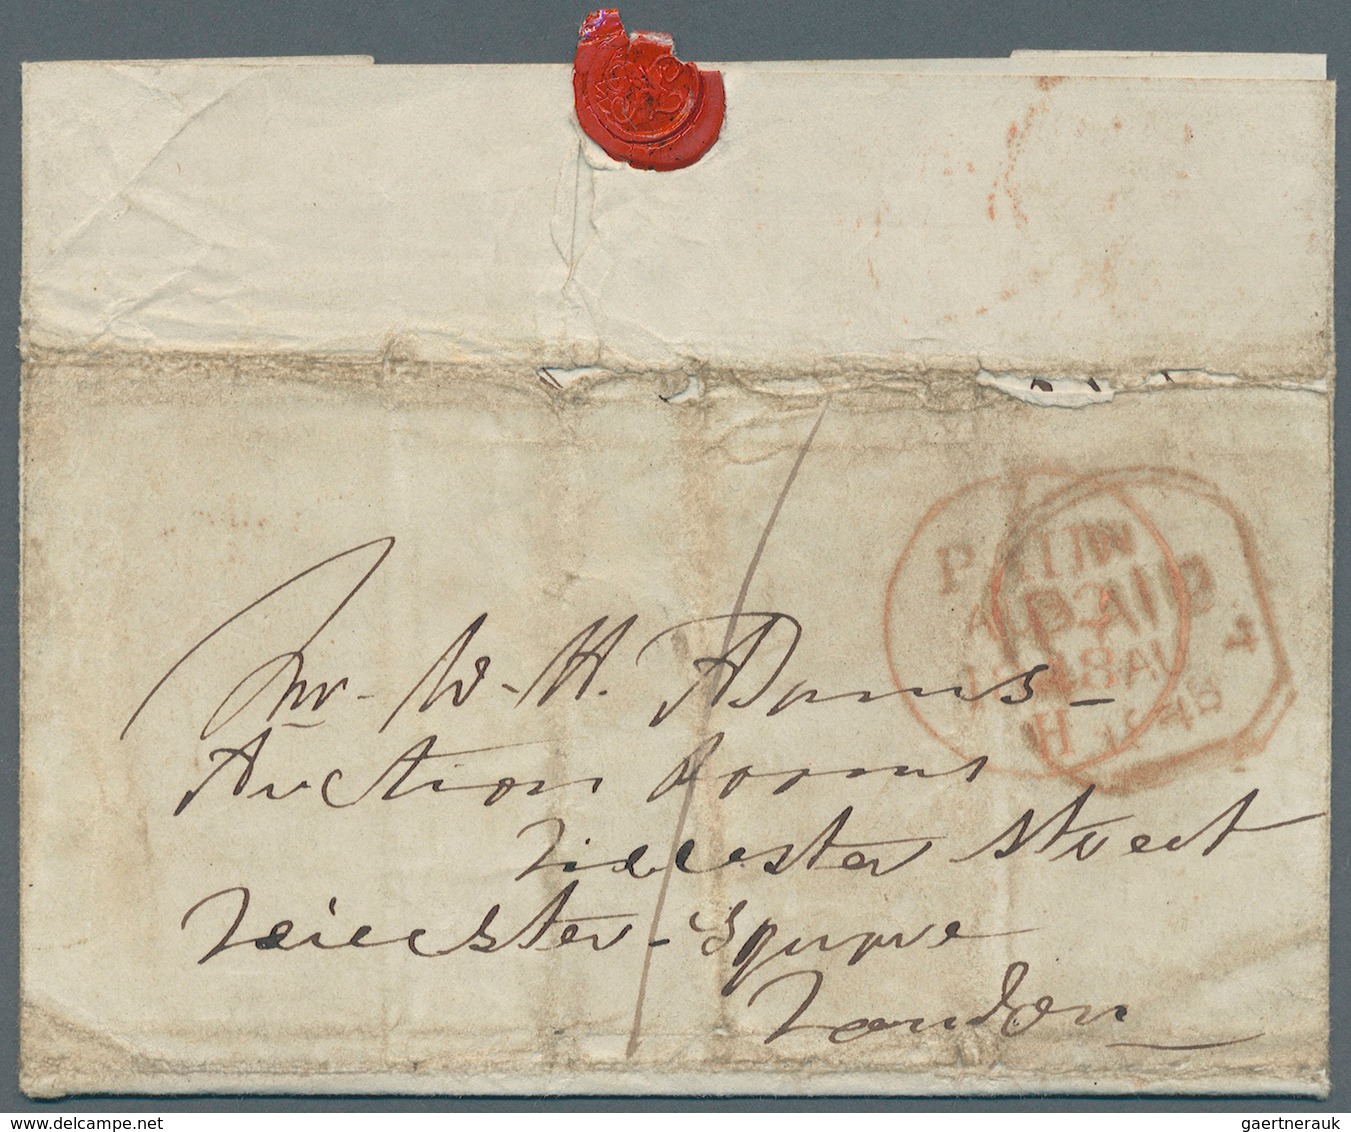 Mr. W. H. Adams -
Auction Rooms
Leicester Street
Leiecster - Square
London
1
PAID
1848
H
PAID
48
© www.delcampe.net
gaertnerauk